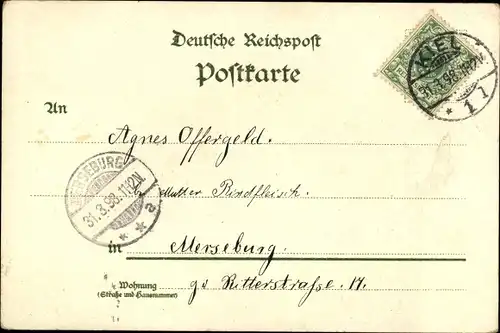 Deutsche Reichspost
Postkarte
KIEL
31.3.98.
* 1 l
An
Agnes Offergeld.
MERSEBURG
31.3.98. 11-12N.
* * a
Mutter Rindfleisch.
in Merseburg.
Wohnung
(Straße und Hausnummer)
gr Ritterstraße 17.